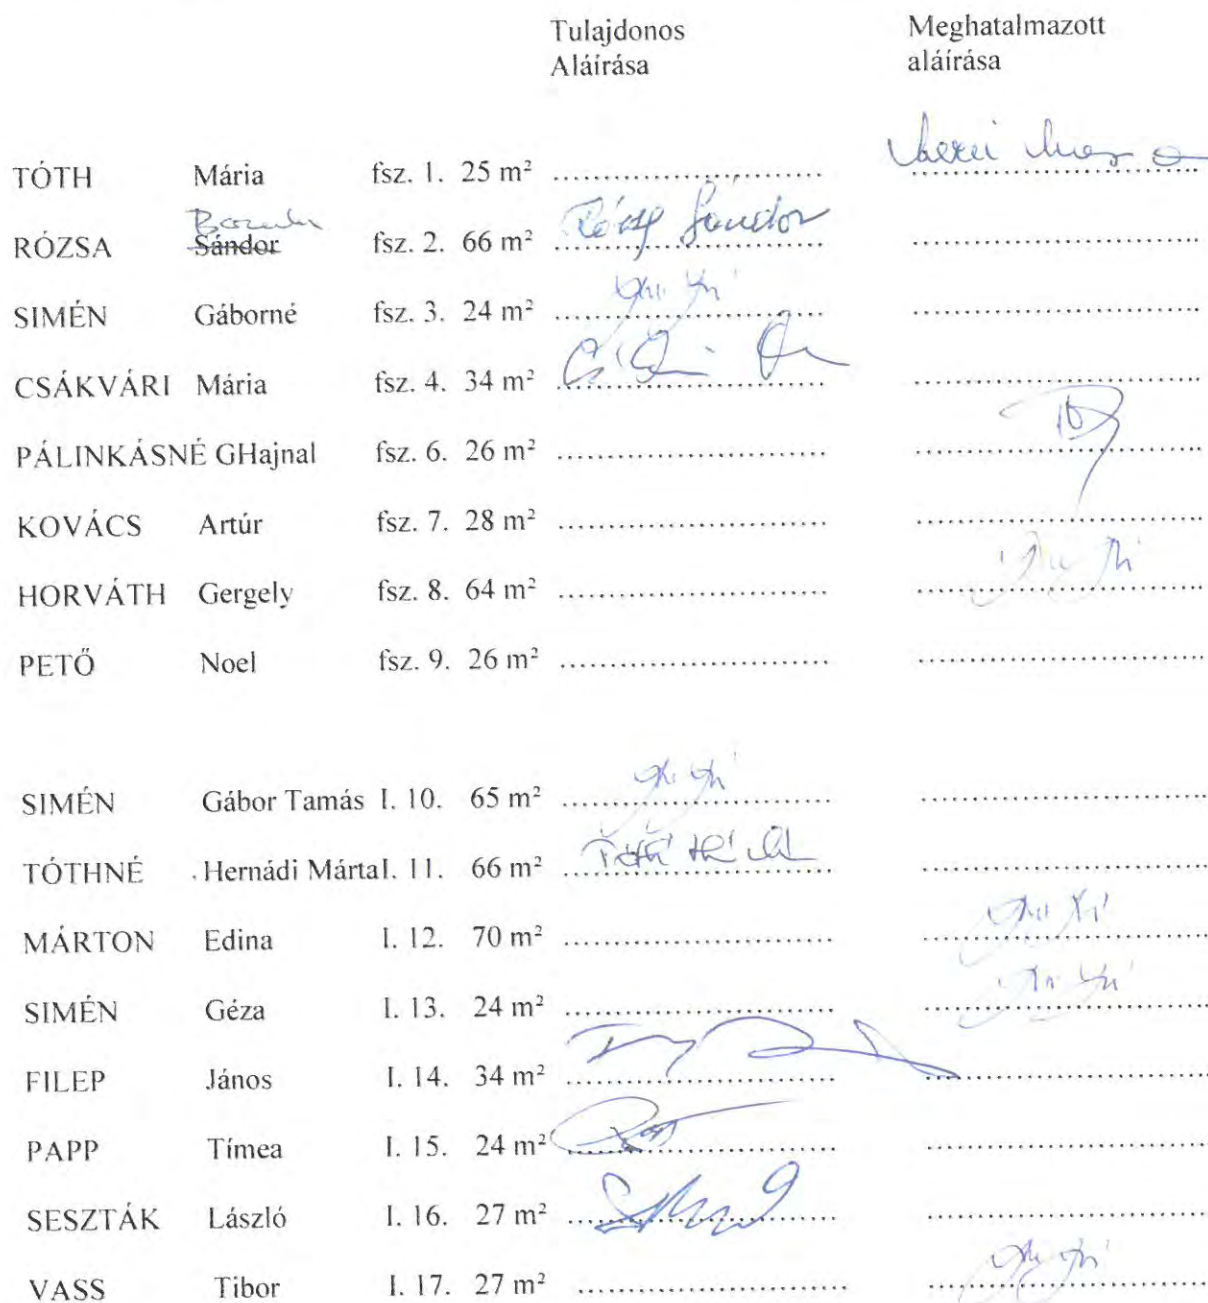 Tulajdonos Meghatalmazott
Aláírása aláírása
TÓTH Mária fsz. 1. 25 m² ........................... ...........................
RÓZSA Sándor fsz. 2. 66 m² Rózsa Sándor ...........................
SIMÉN Gáborné fsz. 3. 24 m² ........................... ...........................
CSÁKVÁRI Mária fsz. 4. 34 m² ........................... ...........................
PÁLINKÁSNÉ GHajnal fsz. 6. 26 m² ........................... ...........................
KOVÁCS Artúr fsz. 7. 28 m² ........................... ...........................
HORVÁTH Gergely fsz. 8. 64 m² ........................... ...........................
PETŐ Noel fsz. 9. 26 m² ........................... ...........................
SIMÉN Gábor Tamás I. 10. 65 m² ........................... ...........................
TÓTHNÉ Hernádi Márta I. 11. 66 m² ........................... ...........................
MÁRTON Edina I. 12. 70 m² ........................... ...........................
SIMÉN Géza I. 13. 24 m² ........................... ...........................
FILEP János I. 14. 34 m² ........................... ...........................
PAPP Tímea I. 15. 24 m² ........................... ...........................
SESZTÁK László I. 16. 27 m² ........................... ...........................
VASS Tibor I. 17. 27 m² ........................... ...........................